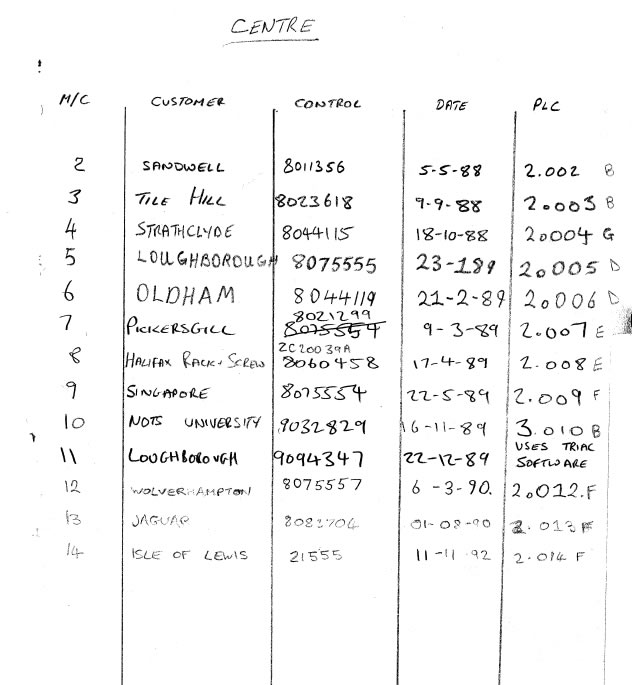 CENTRE
M/C CUSTOMER CONTROL DATE PLC
2 SANDWELL 8011356 5-5-88 2.002 B
3 TILE HILL 8023618 9-9-88 2.003 B
4 STRATHCLYDE 8044115 18-10-88 2.0004 G
5 LOUGHBOROUGH 8075555 23-1-89 2.005 D
6 OLDHAM 8044119 21-2-89 2.006 D
8021299
7 PICKERSGILL 8075554 9-3-89 2.007 E
2C20039A
8 HALIFAX RACK + SCREW 8060458 17-4-89 2.008 E
9 SINGAPORE 8075554 22-5-89 2.009 F
10 NOTS UNIVERSITY 9032829 16-11-89 3.010 B
USES TRIAC
11 LOUGHBOROUGH 9094347 22-12-89 SOFTWARE
12 WOLVERHAMPTON 8075557 6-3-90. 2.012.F
13 JAGUAR 01-08-90 2.013 F
14 ISLE OF LEWIS 21555 11-11-92 2.014 F